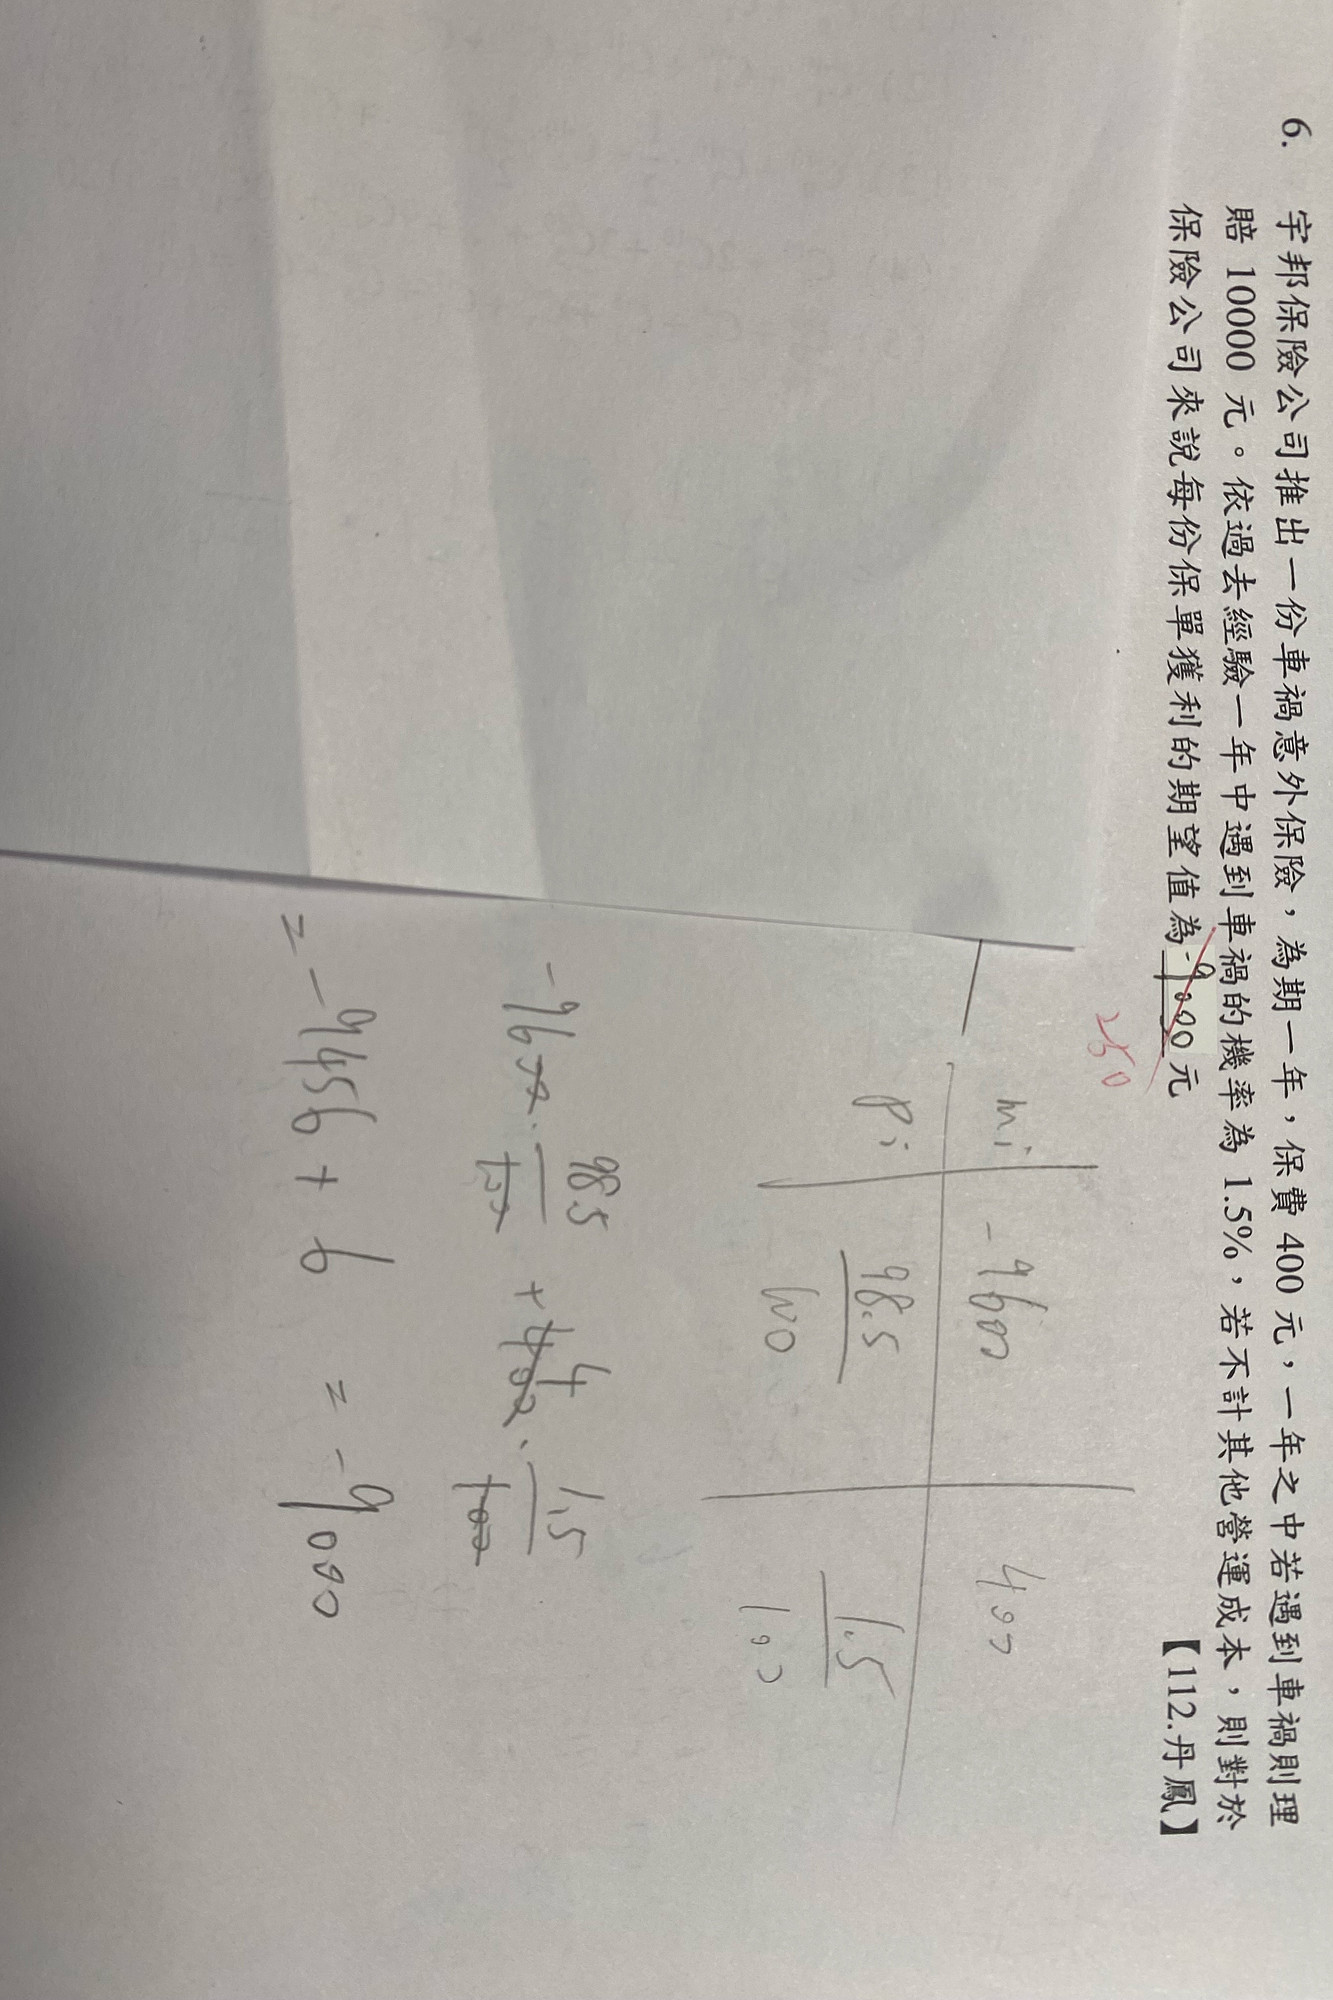 6. 宇邦保險公司推出一份車禍意外保險，為期一年，保費 400 元，一年之中若遇到車禍則理
賠 10000 元。依過去經驗一年中遇到車禍的機率為 1.5%，若不計其他營運成本，則對於
保險公司來說每份保單獲利的期望值為 -9000 元 【112.丹鳳】
250
mi -9600 400
pi 98.5/100 1.5/100
-9600 · 98.5/100 + 400 4 · 1.5/100
= -9456 + 6 = -9000